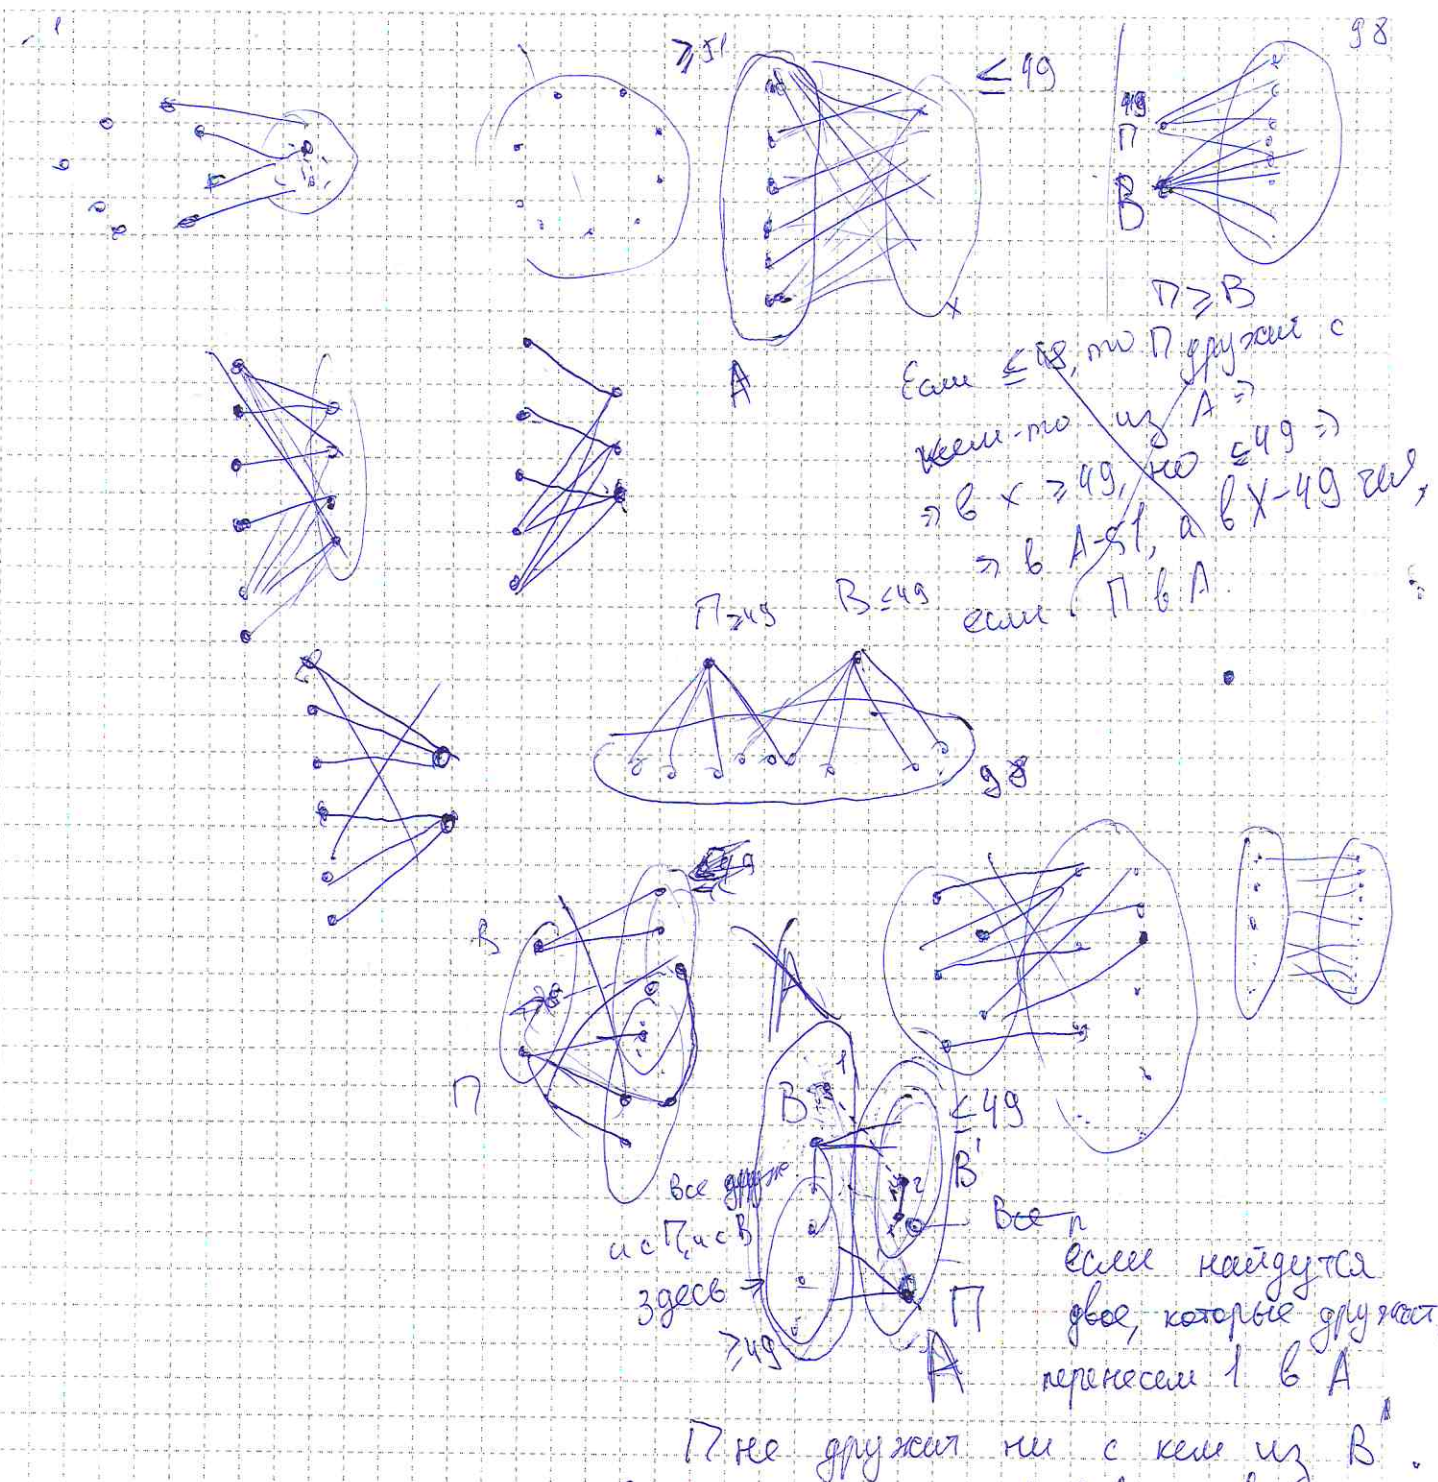 98
≥51
≤49
49
П
В
П≥В
А
Если ≤48, то П дружит с
кем-то из А ⇒
⇒ в X ≥49, но ≤49 ⇒
⇒ в А-51, а в X-49 чел,
если П в А.
П≥49
В≤49
98
В
А
П
1
В
≤49
В'
2
все друж
и с П, и с В
здесь →
≥49
Все п
П
А
если найдутся
двое, которые дружат
перенесем 1 в А
П не дружит ни с кем из В'.